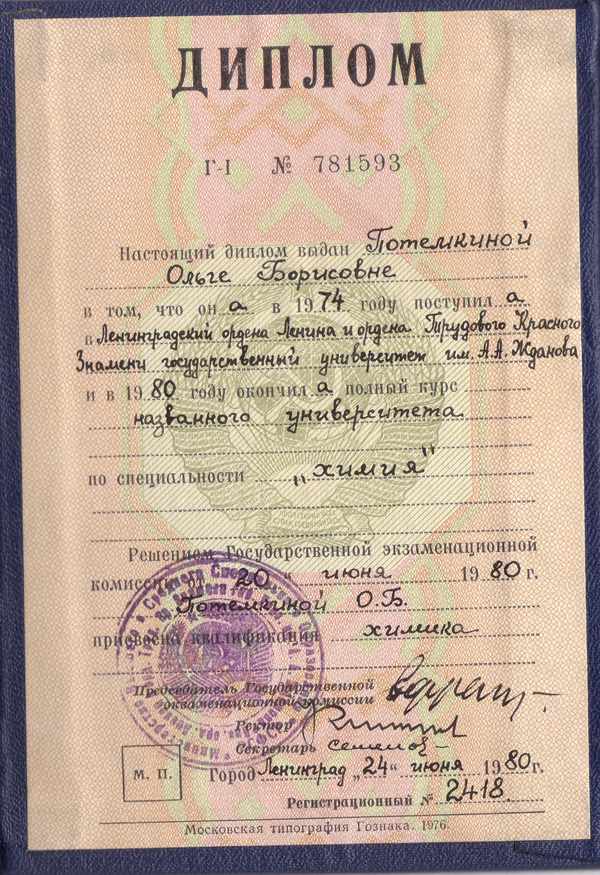 ДИПЛОМ
Г-I № 781593
Настоящий диплом выдан Потемкиной
Ольге Борисовне
в том, что он а в 1974 году поступил а
в Ленинградский ордена Ленина и ордена Трудового Красного
Знамени государственный университет им. А.А. Жданова
и в 1980 году окончил а полный курс
названного университета
по специальности „химия"
Решением Государственной экзаменационной
комиссии от „20" июня 1980 г.
Потемкиной О.Б.
присвоена квалификация химика
Председатель Государственной
экзаменационной комиссии
Ректор
Секретарь
М. П.
Город Ленинград „24" июня 1980 г.
Регистрационный № 2418
Московская типография Гознака. 1976.